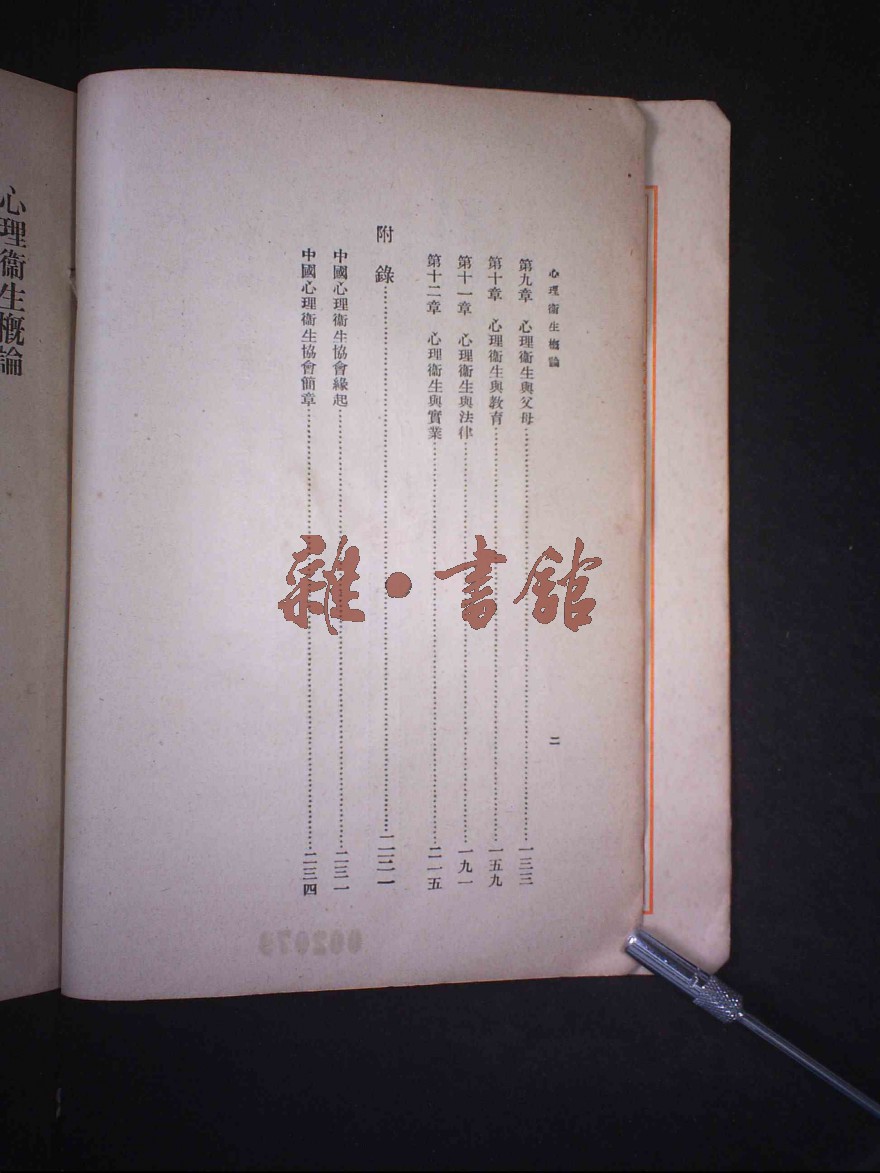 心理衞生概論
二
第九章　心理衞生與父母……一三三
第十章　心理衞生與教育……一五九
第十一章　心理衞生與法律……一九一
第十二章　心理衞生與實業……二一五
附錄……二三一
中國心理衞生協會緣起……二三一
中國心理衞生協會簡章……二三四
心理衞生概論
雜·書館
002079